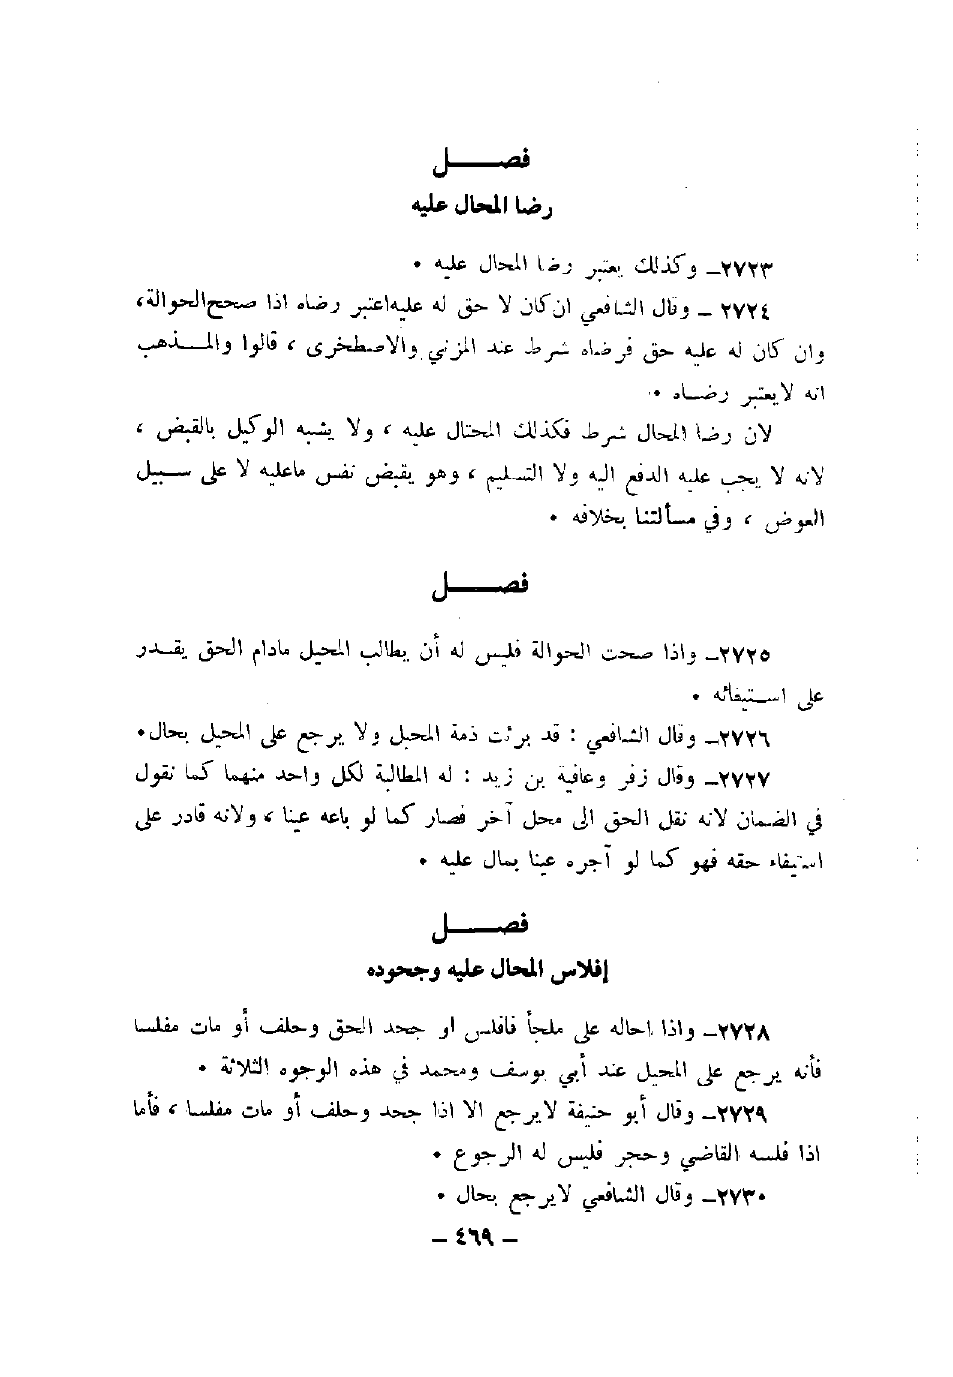 فصـــــل
رضا المحال عليه
٢٧٢٣ـ وكذلك يعتبر رضا المحال عليه ٠
٢٧٢٤ ـ وقال الشافعي ان كان لا حق له عليه اعتبر رضاه اذا صحح الحوالة،
وان كان له عليه حق فرضاه شرط عند المزني والاصطخرى ، قالوا والمــذهب
انه لا يعتبر رضــاه ٠
لان رضا المحال شرط فكذلك المحتال عليه ، ولا يشبه الوكيل بالقبض ،
لانه لا يجب عليه الدفع اليه ولا التسليم ، وهو يقبض نفس ماعليه لا على ســبيل
العوض ، وفي مسألتنا بخلافه ٠
فصـــــل
٢٧٢٥ـ واذا صحت الحوالة فليس له أن يطالب المحيل مادام الحق يقــدر
على استيفائه ٠
٢٧٢٦ـ وقال الشافعي : قد برئت ذمة المحيل ولا يرجع على المحيل بحال٠
٢٧٢٧ـ وقال زفر وعافية بن زيد : له المطالبة لكل واحد منهما كما نقول
في الضمان لانه نقل الحق الى محل آخر فصار كما لو باعه عينا ، ولانه قادر على
استيفاء حقه فهو كما لو آجره عينا بمال عليه ٠
فصـــــل
إفلاس المحال عليه وجحوده
٢٧٢٨ـ واذا احاله على ملجأ فافلس او جحد الحق وحلف أو مات مفلسا
فأنه يرجع على المحيل عند أبي يوسف ومحمد في هذه الوجوه الثلاثة ٠
٢٧٢٩ـ وقال أبو حنيفة لايرجع الا اذا جحد وحلف أو مات مفلسا ، فأما
اذا فلسه القاضي وحجر فليس له الرجوع ٠
٢٧٣٠ـ وقال الشافعي لايرجع بحال ٠
ـ ٤٦٩ ـ